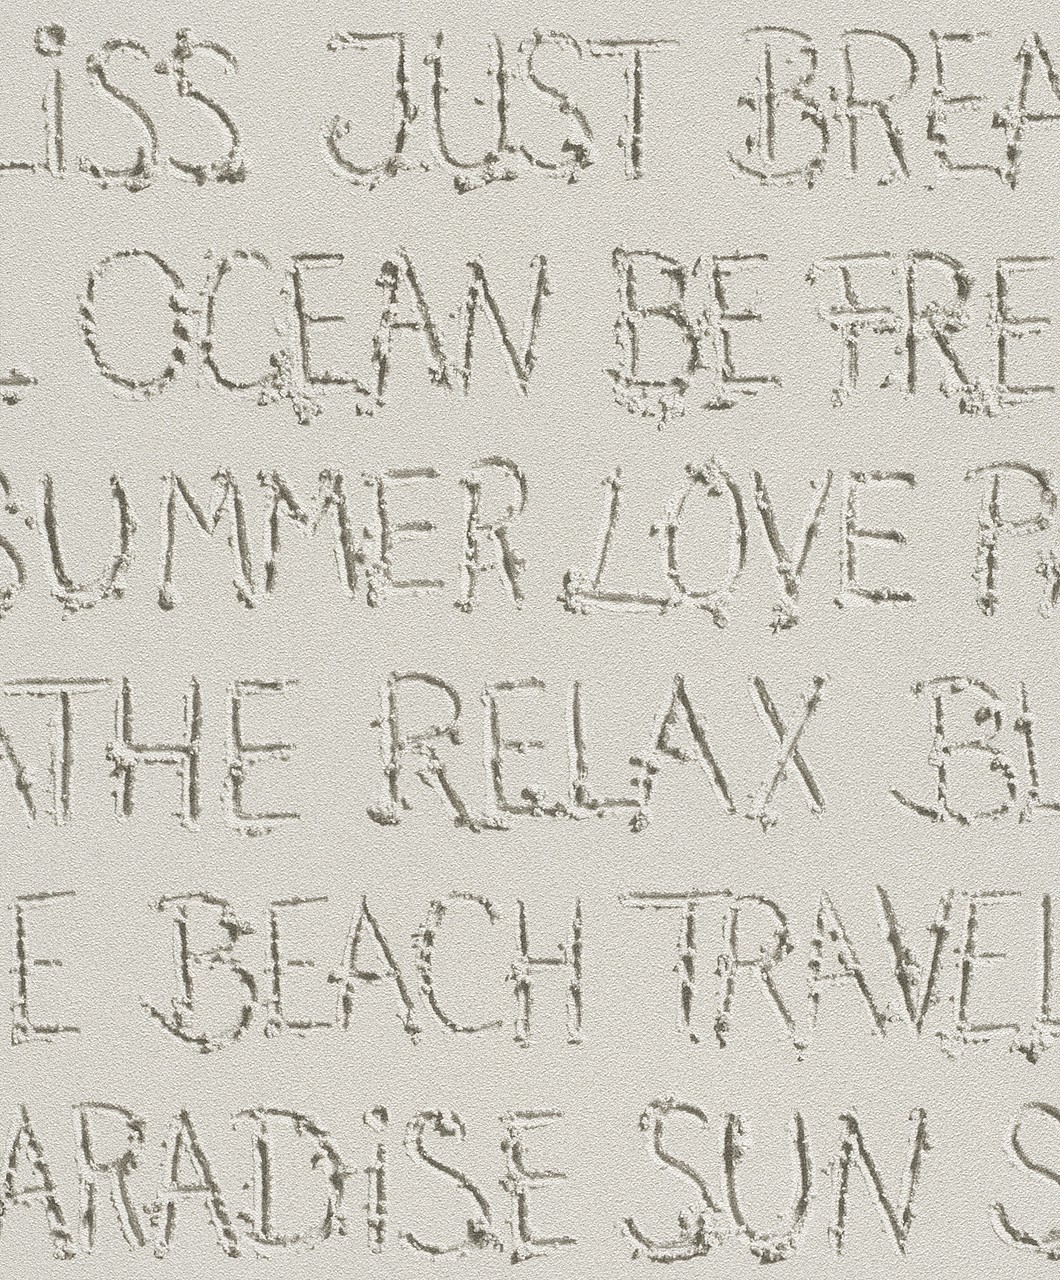 LiSS JUST BREA
L OCEAN BE FREE
SUMMER LOVE PA
ATHE RELAX BL
E BEACH TRAVEL
ARADiSE SUN S